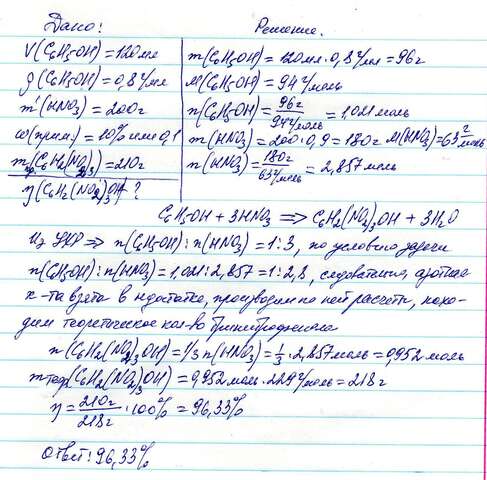 Дано:
Решение.
V(C6H5OH)=120мл
ρ(C6H5OH)=0,8г/мл
m'(HNO3)=200г
ω(прим.)=10% или 0,1
mпр(C6H2(NO2)3OH)=210г
η(C6H2(NO2)3OH)-?
m(C6H5OH)=120мл·0,8г/мл=96г
M(C6H5OH)=94г/моль
n(C6H5OH)=96г/94г/моль=1,021моль
m(HNO3)=200·0,9=180г M(HNO3)=63г/моль
n(HNO3)=180г/63г/моль=2,857моль
C6H5OH+3HNO3⟹C6H2(NO2)3OH+3H2O
Из УХР⟹n(C6H5OH):n(HNO3)=1:3, по условию задачи
n(C6H5OH):n(HNO3)=1,021:2,857=1:2,8, следовательно, азотная
к-та взята в недостатке, производим по ней расчеты, нахо-
дим теоретическое кол-во тринитрофенола
n(C6H2(NO2)3OH)=1/3n(HNO3)=1/3·2,857моль=0,952моль
mтеор(C6H2(NO2)3OH)=0,952моль·229г/моль=218г
η=210г/218г·100%=96,33%
Ответ: 96,33%